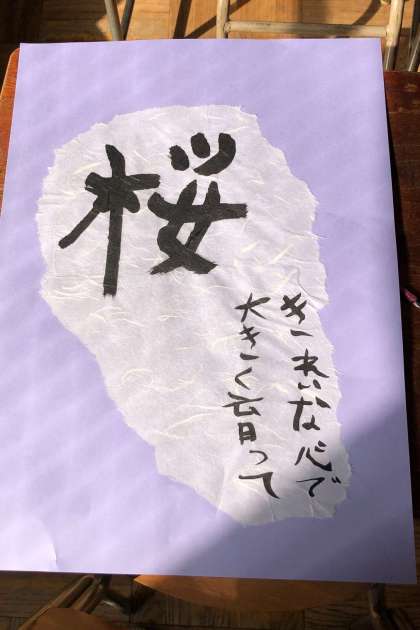 桜
きれいな心で
大きく育って